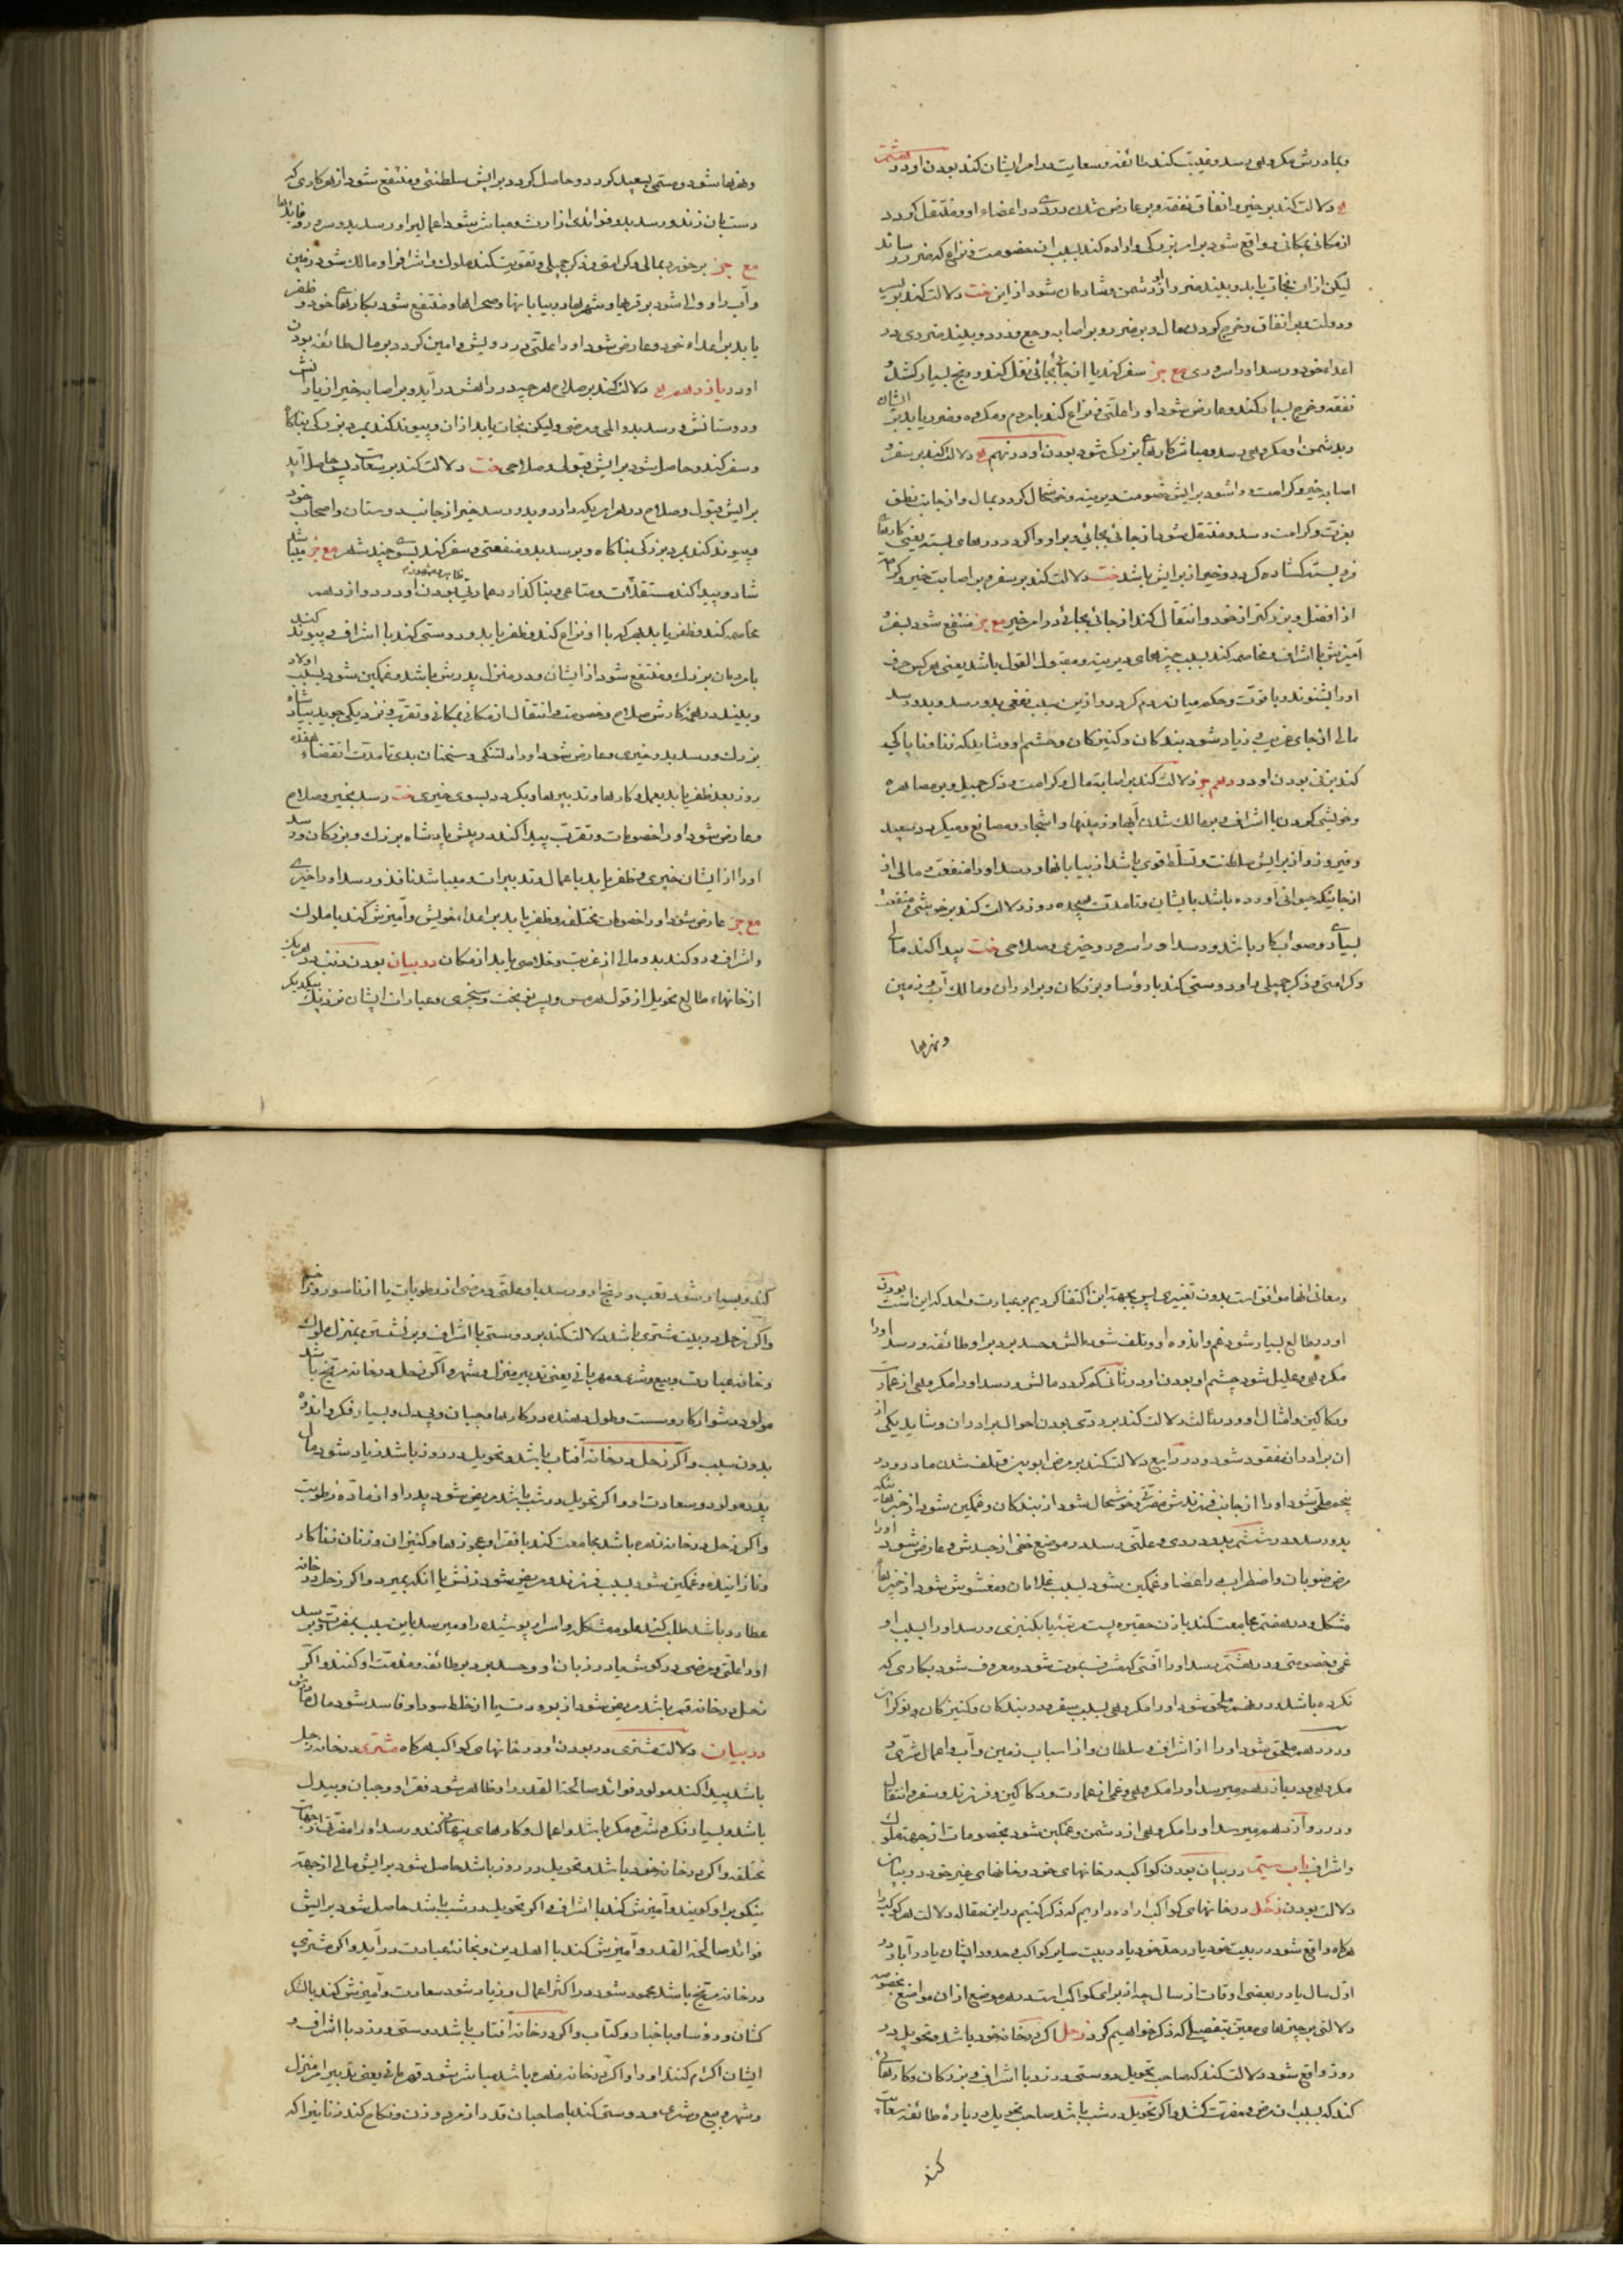 و بمادرش مکروهی رسد و غیبت کند طائفه و سعایت در امر ایشان کند بودن او در هشتم
دلالت کند بر خیر و انفاق نفقه و بر عارض شدن دردی در اعضاء او و منتقل کردد
از مکانی بمکانی و واقع شود بر امر بزرکی و اراده کند بسبب ان خصومت و نزاع که ضرر رساند
لیکن از ان نجات یابد و بیند ضرر از دشمن و شادمان شود از این خت دلالت کند بر
و دولت بر انفاق و خرج کردن مال و بر ضرر و بر اصابه وجع و درد و بیند ضرری در
اعداء خود و رسد او را سروری مع جز سفر کند یا از جائی بجائی نقل کند و رنج بسیار کشد و
نفقه و خرج بسیار کند و عارض شود او را علتی و نزاع کند با مردم و مکروه و ضرر یابد بر ایشان
و بدشمن او مکروهی رسد و مباشر کارهای بزرک شود بودن او در نهم دلالت کند بر سفر و
اصابه خیر و کرامت و شود برایش خصومت دیرینه و خوشحال کردد بمال و از جانب نطق
بعزت و کرامت رسد و منتقل شود از جائی بجائی و بر او وا کردد درهای بسته یعنی کارهای
فروبسته کشاده کردد و خیر از برایش باشد خت دلالت کند بر سفر و بر اصابت خیر و کرامت
از افضل و بزرکتر از خود و انتقال کند از جائی بجائی در امر خیر مع جز منتفع شود بسفر و
آمیزش با اشراف و مخاصمه کند بسبب چیزهای دیرینه و مقبول القول باشد یعنی هر کس حرف
او را بشنوند و با قوت و حکم میان مردم کردد و از این سبب نفعی بدو رسد و بدو رسد
مالی از جای غریبی و زیاد شود بندکان و کنیزکان و حشم او و شاید که زنا و ناپاکی
کند بزنی بودن او در دهم جز دلالت کند بر اصابه مال و کرامت و ذکر جمیل و بر مصاهره
و خویشی کردن با اشراف و بر مالک شدن آبها و زمینها و اشجار و مصانع و میکردد سعید
و فیروز و از برایش سلطنت و تسلط قوی باشد از بیابانها و رسد او را منفعت و مالی از
از جانیکه حیوانی آورده باشد بایشان و تا مدت هیجده روز دلالت کند بر خویشی و منفعت
بسیار و صواب کار باشد و رسد او را سرور و خیری و صلاحی خت پیدا کند مالی
و کرامتی و ذکر جمیلی را و دوستی کند با رؤسا و بزرکان و برادران و مالک آب و زمین
و نهرها
و نهرها شود و مستمی بسعید کردد و حاصل کردد برایش سلطنتی و منتفع شود از هر کاری که
دست بان زند و رسد بدو فوائدی از ارث و مباشر شود اعمالی را و رسد بدو سرور و فایدها
مع جز برخورد بمالی و کرامتی و ذکر جمیلی و تقویت کند ملوک و اشراف را و مالک شود زمین
و آب را و والی شود بر قریها و شهرها و بیابانها و صحراها و منتفع شود بکارهای خود و ظفر
یابد بر اعداء خود و عارض شود او را علتی در رویش و امین کردد بر مال طائفه بودن
او در یازدهم دلالت کند بر صلاح هر چه در دلش در آید و بر اصابه خیر از یارانش
و دوستانش و رسد بدو المی و مرضی و لیکن نجات یابد از ان و پیوند کند بمرد بزرکی بناکاه
و سفر کند و حاصل شود برایش قبولی و صلاحی خت دلالت کند بر سعادت پس حاصل آید
برایش قبول و صلاح در هر امریکه دارد و بدو رسد خیر از جانب دوستان و اصحاب خود
و پیوند کند بمرد بزرکی بناکاه و برسد بدو منفعتی و سفر کند بسوی چند شهر مع جز میباشد
شاد و پیدا کند مستغلات و متاعی و بنا کذارد عمارتی بودن او در دوازدهم
مخاصمه کند و ظفر یابد بهر که با او نزاع کند و ظفر یابد و دوستی کند با اشراف و پیوند کند
با مردمان بزرک و منتفع شود از ایشان و در منزل پدرش باشد و غمکین شود بسبب اولاد
و بیند در همه کارش صلاح و خصومت و انتقال از مکانی بمکانی و تقرب و نزدیکی جوید بپادشاه
بزرک و رسد بدو خیری و عارض شود او را دلتنکی و سخنان بدی تا مدت انقضاء هفده
روز بعد ظفر یابد بعمل و کارها و تدبیرها و بکردد بسوی خیری خت رسد بخیر و صلاح
و عارض شود او را خصومات و تقرب پیدا کند در پیش پادشاه بزرک و بزرکان و رسد
او را از ایشان خیری و ظفر یابد باعمال و تدبیرات و میباشد نافذ و رسد او را خیری
مع جز عارض شود او را خصومات مختلفه و ظفر یابد بر اعداء خویش و آمیزش کند با ملوک
و اشراف و رو کند بدو مالی از غربت و خلاصی یابد از مکان در بیان بودن ذنب در هر یک
از خانهاء طالع تحویل از قول هرمس و بس بوبخت و سنجری و عبارات ایشان نزدیک بیکدیکر
و معانی انها موافق است بدون تغییری پس بجهت این اکتفا کردیم بر عبارت واحد که این است بودن
او در طالع بسیار شود غم و اندوه او و تلف شود مالش و حسد برد بر او طائفه و رسد او را
مکروهی و علیل شود چشم او بودن او در ثانی کم کردد مالش و رسد او را مکروهی از عمارت
و دکاکین و امثال او و در ثالث دلالت کند بر ردی بودن احوال برادران و شاید یکی از
ان برادران مفقود شود و در رابع دلالت کند بر مرض ابوین و تلف شدن مادر و در
پنجم ملحق شود او را از جانب فرزندش مضرت و خوشحال شود از بندکان و غمکین شود از خبرها
بدو رسد و در ششم بدو دردی و علتی رسد در موضع خفی از جسدش و عارض شود او را
مرض ضربان و اضطرابی در اعضا و غمکین شود بسبب غلامان و مغشوش شود از خبرهای
مشکل و در هفتم مجامعت کند با زن حقیره پست مرتبه یا بکنیزی و رسد او را بسبب او
غمی و خصومتی و در هشتم رسد او را آفتی که مشرف بموت شود و معروف شود بکاری که
نکرده باشد و در نهم ملحق شود او را مکروهی بسبب سفر و در بندکان و کنیزکان و نوکران
و در دهم ملحق شود او را از اشراف و سلطان و از اسباب زمین و آب و اعمال شری و
مکروهی و در یازدهم میرسد او را مکروهی و غمی از عمارت و دکاکین و فرزند و سفر و انتقال
و در دوازدهم میرسد او را مکروهی از دشمن و غمکین شود بخصومات از جهة ملوک
و اشراف باب ستم در بیان بودن کواکب در خانهای خود و خانهای غیر خود در بیان
دلالت بودن زحل در خانهای کواکب اراده داریم که ذکر کنیم در این مقاله دلالت هر کوکبرا
هرکاه واقع شود در بیت خود یا در حد خود یا در بیت سایر کواکب و حدود ایشان یا در آباد در
اول سال یا در بعضی اوقات از سال چه از برای کواکب است در هر موضع از ان مواضع بخصوص
دلالتی بر چیزهای معین بتفصیلی که ذکر خواهیم کرد زحل اکر در خانه خود باشد و تحویل در
روز واقع شود دلالت کند که صاحب تحویل دوستی ورزد با اشراف و بزرکان و کارهائی
کند که بسبب ان مرض و مضرت کشد و اکر تحویل در شب باشد صاحب تحویل در باره طائفه سعایت
کند
کند و بسیار شود تعب و رنج او و رسد باو علتی و مرضی از رطوبات یا از ناسور و
و اکر زحل در بیت مشتری باشد دلالت کند بر دوستی با اشراف و بر نشستن بمنزل ملوک
و خانه عبادت و بیع و شری و قهرمانی یعنی تدبیر منزل و شهر و اکر زحل در خانه مریخ باشد
مولود دشوار کار و سست و طول دهنده در کارها و جبان و بیدل و بسیار فکر و اندوه
بدون سبب و اکر زحل در خانه آفتاب باشد و تحویل در روز باشد زیاد شود مال
پدر مولود و سعادت او و اکر تحویل در شب باشد مریض شود پدر او از ماده رطوبت
و اکر زحل در خانه زهره باشد مجامعت کند با فقرا و عجوزها و کنیزان و زنان زناکار
و نازاینده و غمکین شود بسبب فرزند و مریض شود زنش یا انکه بمیرد و اکر زحل در خانه
عطارد باشد طلب کند علوم مشکل و اسرار پوشیده را و میرسد باین سبب بمضرت و برسد
او را علتی و مرضی در کوش یا در زبان او و حسد برد بر او طائفه و مذمت او کنند و اکر
زحل در خانه قمر باشد مریض شود از برودت یا از خلط سودا و فاسد شود مال مادرش
در بیان دلالت مشتری در بودن او در خانهای کواکب هرکاه مشتری در خانه زحل
باشد پیدا کند مولود فوائد صالحة القدر را و ظاهر شود فقر او و جبان و بیدل
باشد و بسیار فکر و شر و مکر باشد و اعمال و کارهای پنهانی کند و رسد او را مضرتی از جهات
مختلفه و اکر در خانه خود باشد و تحویل در روز باشد حاصل شود برایش مالی از جهة
نیکو بر او کویند و آمیزش کند با اشراف و اکر تحویل در شب باشد حاصل شود برایش
فوائد صالحة القدر و آمیزش کند با اهل دین و بخانه عبادت در آید و اکر مشتری
در خانه مریخ باشد محمود شود در اکثر اعمال و زیاد شود سعادت و آمیزش کند با لشکر
کشان و رؤسا و با خبار و کتاب و اکر در خانه آفتاب باشد دوستی ورزد با اشراف و
ایشان اکرام کنند او را و اکر در خانه زهره باشد مباشر شود قهرمانی یعنی تدبیر امر منزل
و شهر و بیع و شری و دوستی کند با صاحبان قدر از مرد و زن و نکاح کند زنانیرا که